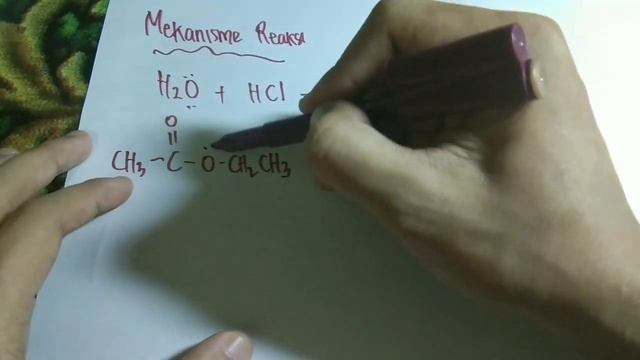 Mekanisme Reaksi
H₂Ö + HCl
O
||
CH₃ - C - O - CH₂CH₃